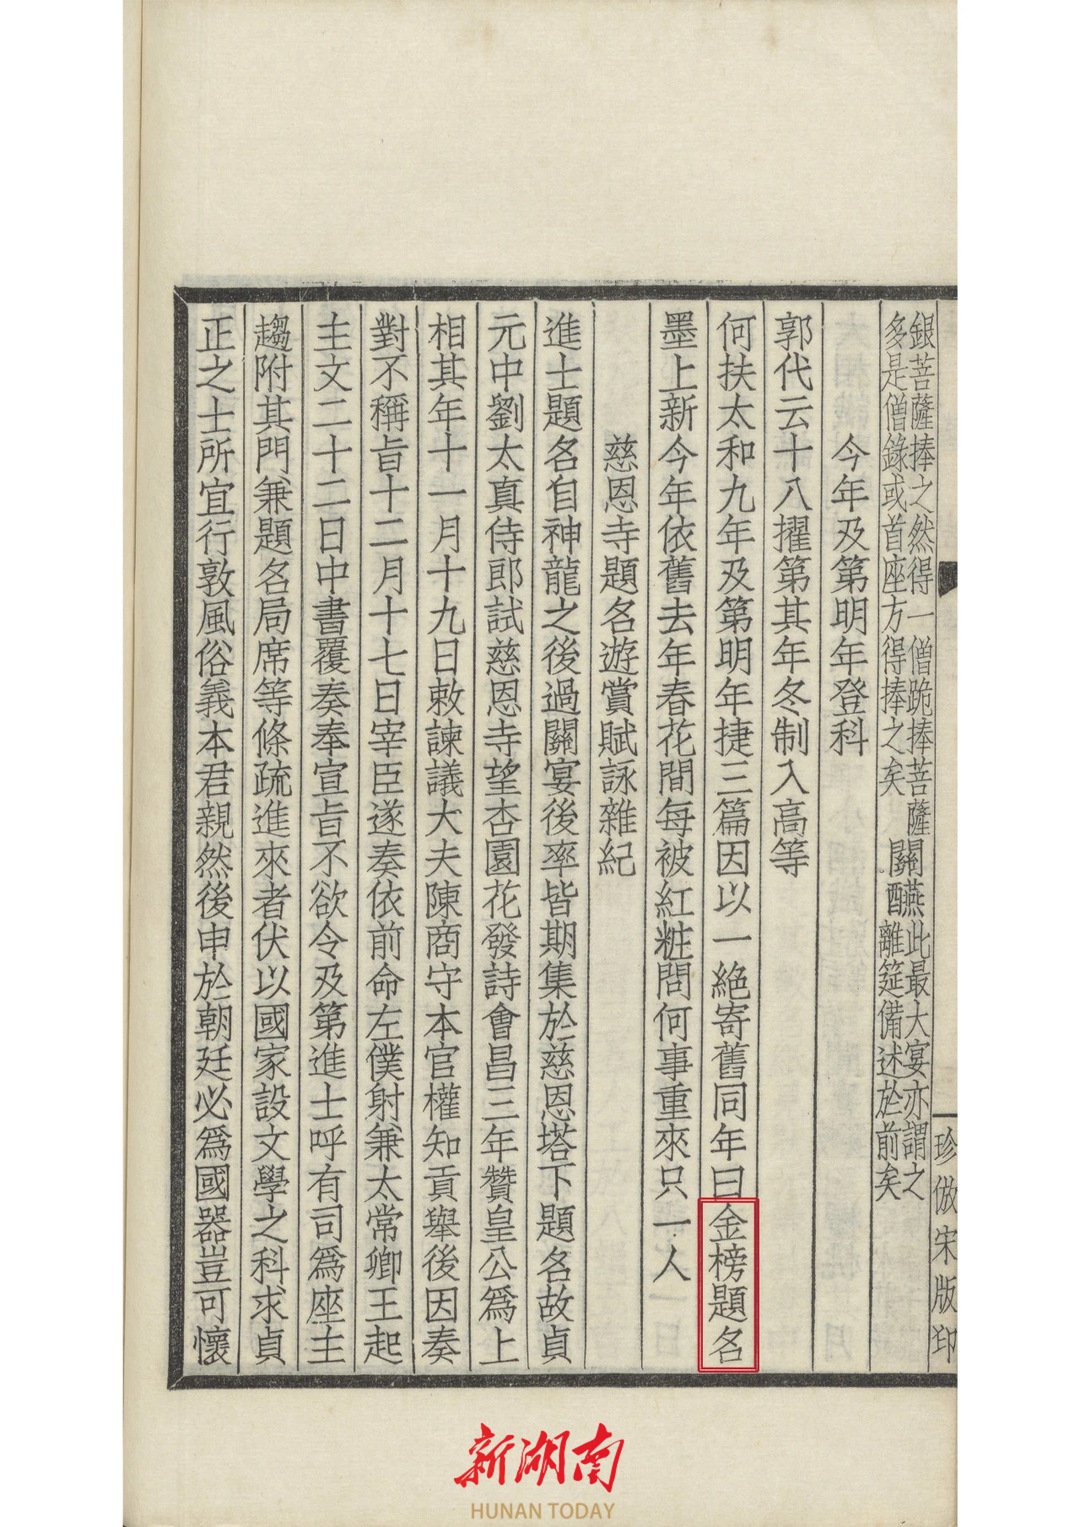 銀菩薩捧之然得一僧跪捧菩薩
多是僧錄或首座方得捧之矣
關醼此最大宴亦謂之
離筵備述於前矣
今年及第明年登科
郭代云十八擢第其年冬制入高等
何扶太和九年及第明年捷三篇因以一絕寄舊同年曰金榜題名
墨上新今年依舊去年春花間每被紅粧問何事重來只一人
慈恩寺題名遊賞賦詠雜紀
進士題名自神龍之後過關宴後率皆期集於慈恩塔下題名故貞
元中劉太真侍郎試慈恩寺望杏園花發詩會昌三年贊皇公為上
相其年十一月十九日敕諫議大夫陳商守本官權知貢舉後因奏
對不稱旨十二月十七日宰臣遂奏依前命左僕射兼太常卿王起
主文二十二日中書覆奏奉宣旨不欲令及第進士呼有司為座主
趨附其門兼題名局席等條疏進來者伏以國家設文學之科求貞
正之士所宜行敦風俗義本君親然後申於朝廷必為國器豈可懷
珍倣宋版印
新湖南
HUNAN TODAY